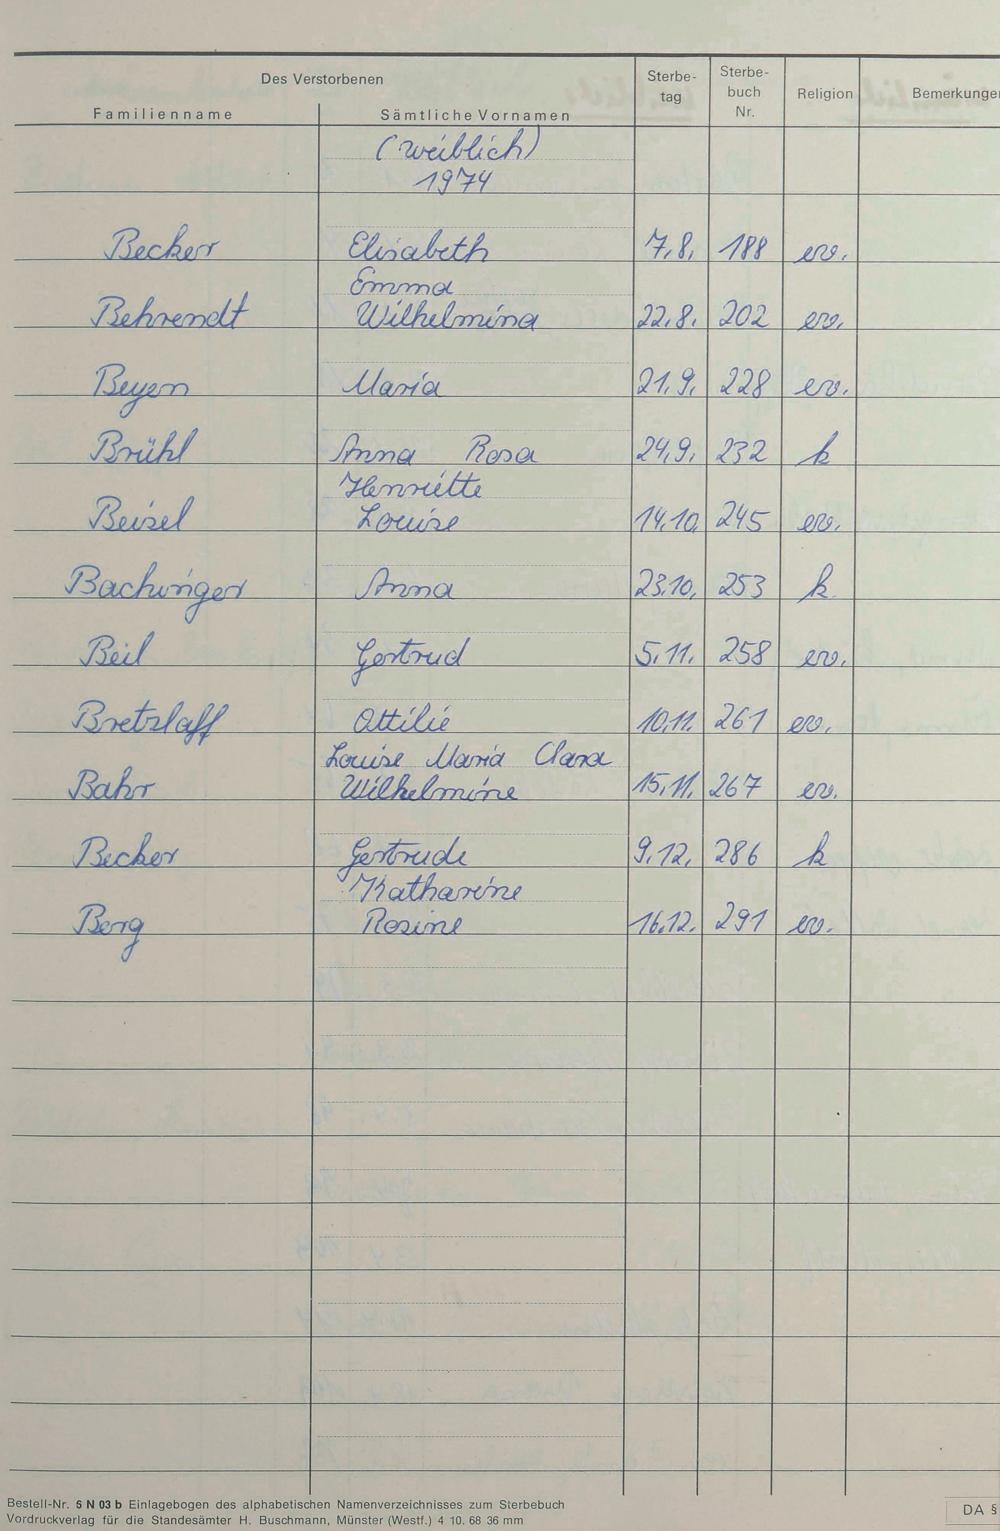 Des Verstorbenen
Familienname Sämtliche Vornamen Sterbe-tag Sterbe-buch Nr. Religion Bemerkungen
(weiblich)
1974
Becker Elisabeth 7.8. 188 ev.
Emma
Behrendt Wilhelmina 22.8. 202 ev.
Beyen Maria 21.9. 228 ev.
Brühl Anna Rosa 24.9. 232 k
Henriette
Beisel Louise 14.10. 245 ev.
Bachinger Anna 23.10. 253 k.
Beil Gertrud 5.11. 258 ev.
Bretzlaff Ottilie 10.11. 261 ev.
Louise Maria Clara
Bahr Wilhelmine 15.11. 267 ev.
Becker Gertrude 9.12. 286 k
Katharine
Berg Rosine 16.12. 291 ev.
Bestell-Nr. 5 N 03 b Einlagebogen des alphabetischen Namenverzeichnisses zum Sterbebuch
Vordruckverlag für die Standesämter H. Buschmann, Münster (Westf.) 4 10. 68 36 mm
DA §